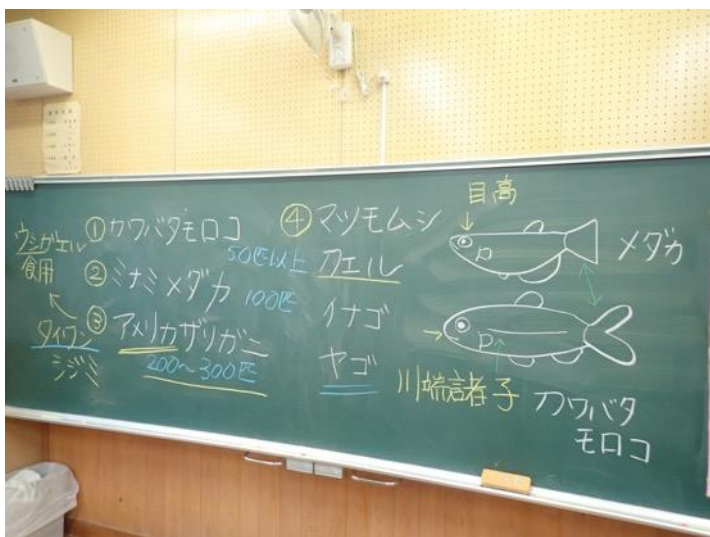 ウシガエル
食用
タイワン
シジミ
①カワバタモロコ
50匹以上
②ミナミメダカ 100匹
③アメリカザリガニ
200～300匹
④マツモムシ
カエル
イナゴ
ヤゴ
目高
メダカ
川端諸子
カワバタ
モロコ